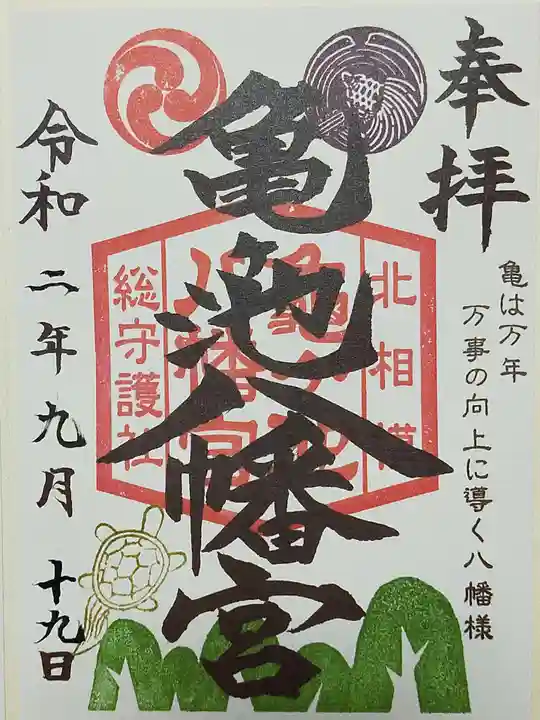 奉拝
亀は万年
万事の向上に導く八幡様
亀池八幡宮
北相模
亀ヶ池
八幡宮
総守護社
令和二年九月十九日